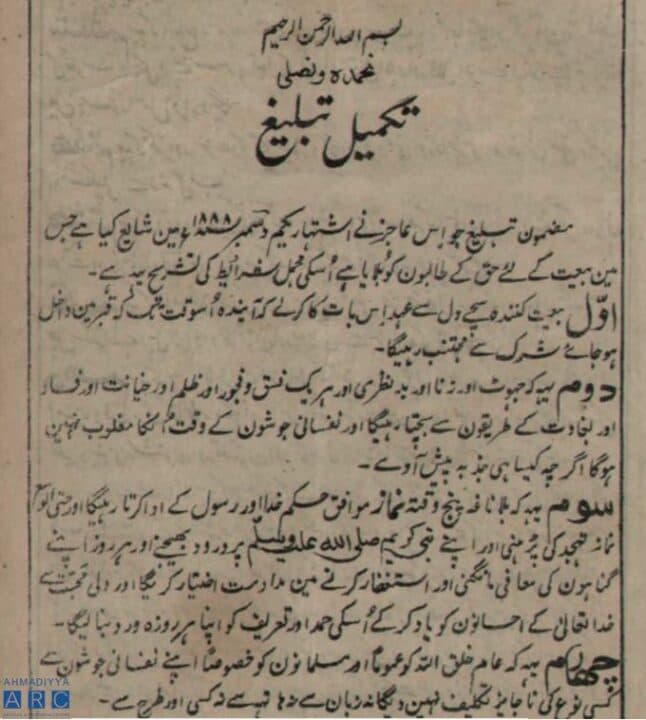 بسم اللہ الرحمن الرحیم
نحمدہ و نصلی
تکمیل تبلیغ
مضمون تبلیغ جو اس عاجز نے اشتہار یکم دسمبر ۱۸۸۸ء مین شایع کیا ہے جس
مین بیعت کے لئے حق کے طالبون کو بلایا ہے اُسکی مجمل شرائط کی تشریح یہ ہے۔
اوّل بیعت کنندہ سچے دل سے عہد اِس بات کا کرلے کہ آیندہ اُسوقت تک کہ قبر مین داخل
ہو جائے شرک سے مجتنب رہیگا۔
دوم یہہ کہ جہوٹ اور زنا اور بد نظری اور ہریک فسق و فجور اور ظلم اور خیانت اور فساد
اور بغاوت کے طریقون سے بچتا رہیگا اور نفسانی جوشون کے وقت اُنکا مغلوب نہین
ہوگا اگرچہ کیسا ہی جذبہ پیش آوے۔
سوم یہہ کہ بلا ناغہ پنج وقتہ نماز موافق حکم خدا اور رسول کے ادا کرتا رہیگا اور حتی الوسع
نماز تہجد کی پڑہنے اور اپنے نبی کریم صلی اللہ علیہ وسلم پر درود بھیجنے اور ہر روز اپنے
گناہون کی معافی مانگنے اور استغفار کرنے مین مداومت اختیار کریگا اور دلی محبت سے
خدا تعالیٰ کے احسانون کو یاد کرکے اُسکی حمد اور تعریف کو اپنا ہر روزہ ورد بنا لیگا۔
چھارم یہہ کہ عام خلق اللہ کو عموماً اور مسلمانون کو خصوصاً اپنے نفسانی جوشون سے
کسی نوع کی ناجایز تکلیف نہین دیگا نہ زبان سے نہ ہاتھ سے نہ کسی اور طرح سے۔
AHMADIYYA
ARC